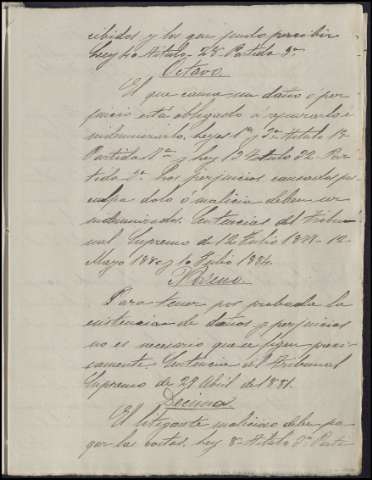 cibidos y los que pudo percibir
Ley 40 título 28 Partida 3ª
Octavo
El que causa un daño o per
juicio está obligado á repararlo é
indemnizarlo. Leyes 1ª y 3ª título 15
Partida 7ª y ley 3 título Par
tida Los perjuicios causados por
culpa dolo ó malicia deben ser
indemnizados. Sentencias del Tribu
nal Supremo de 12 Julio 12
Mayo y 10 Julio 1884.
Noveno
Para tener por probada la
existencia de daños y perjuicios
no es necesario que se fijen preci
samente. Sentencia del Tribunal
Supremo de 29 Abril de 1881.
Decimo
El litigante malicioso debe pa
gar las costas. Ley 8ª título Parti